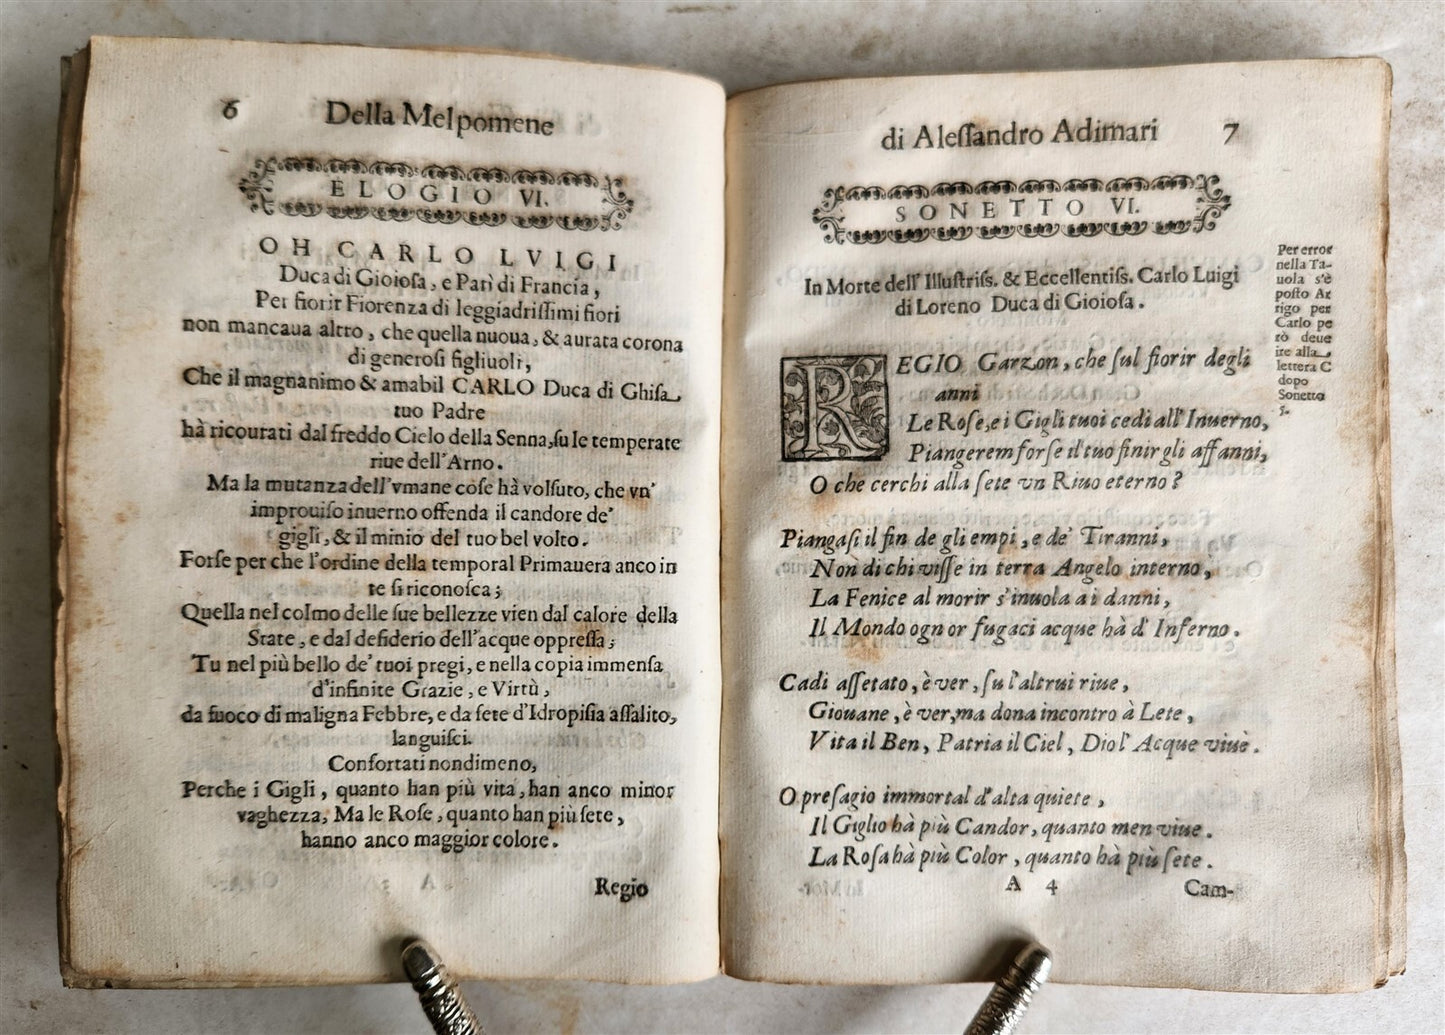 6
Della Melpomene
ELOGIO VI.
OH CARLO LVIGI
Duca di Gioioſa, e Parì di Francia,
Per fiorir Fiorenza di leggiadriſſimi fiori
non mancaua altro, che quella nuoua, & aurata corona
di generoſi figliuoli,
Che il magnanimo & amabil CARLO Duca di Ghiſa
tuo Padre
hà ricourati dal freddo Cielo della Senna, ſu le temperate
riue dell'Arno.
Ma la mutanza dell'vmane coſe hà volſuto, che vn'
improuiſo inuerno offenda il candore de'
gigli, & il minio del tuo bel volto.
Forſe per che l'ordine della temporal Primauera anco in
te ſi riconoſca;
Quella nel colmo delle ſue bellezze vien dal calore della
State, e dal deſiderio dell'acque oppreſſa;
Tu nel più bello de' tuoi pregi, e nella copia immenſa
d'infinite Grazie, e Virtù,
da fuoco di maligna Febbre, e da ſete d'Idropiſia aſſalito,
languiſci.
Confortati nondimeno,
Perche i Gigli, quanto han più vita, han anco minor
vaghezza, Ma le Roſe, quanto han più ſete,
hanno anco maggior colore.
Regio
di Aleſſandro Adimari
7
SONETTO VI.
In Morte dell' Illuſtriſs. & Eccellentiſs. Carlo Luigi
di Loreno Duca di Gioioſa.
Per error
nella Ta-
uola s'è
poſto Ar
rigo per
Carlo pe
rò deue
ire alla
lettera C
dopo
Sonetto
5.
REGIO Garzon, che ſul fiorir degli
anni
Le Roſe, e i Gigli tuoi cedi all' Inuerno,
Piangerem forſe il tuo finir gli affanni,
O che cerchi alla ſete vn Riuo eterno?
Piangaſi il fin de gli empi, e de' Tiranni,
Non di chi viſſe in terra Angelo interno,
La Fenice al morir s'inuola ai danni,
Il Mondo ogn or fugaci acque hà d' Inferno.
Cadi aſſetato, è ver, ſu l'altrui riue,
Giouane, è ver, ma dona incontro à Lete,
Vita il Ben, Patria il Ciel, Dio l' Acque viuè.
O preſagio immortal d'alta quiete,
Il Giglio hà più Candor, quanto men viue.
La Roſa hà più Color, quanto hà più ſete.
A 4
Cam-